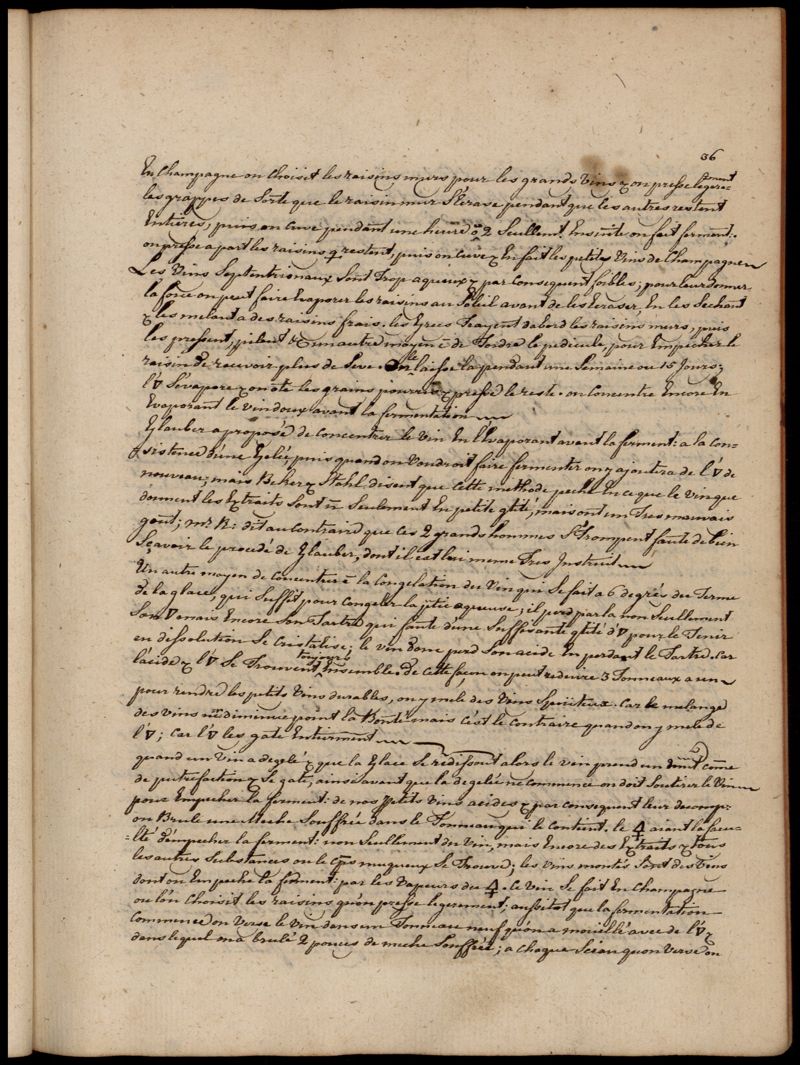 36
En Champagne on Choisit les raisins murs pour les grands Vins & on presse legere-
ment
les grappes de Sorte que le raisin mur S'écrase pendant que les autres restent
Entières, puis on cuve pendant une heure ou 2 Seullemt Ensuite on fait ferment:
on presse a part les raisins q restent, puis on cuve & En fait les petits Vins de Champagne
Les Vins Septentrionaux Sont Trop aqueux & par consequent foibles; pour leur donner
la force on peut faire Evaporer les raisins au Soleil avant de les Ecraser, En les Sechant
& les melant a des raisins frais. les Grecs d'abord les raisins murs, puis
les pressent, pilent & un autre moyen é de Tordre le pedicule pour Empecher le
raisin de recevoir plus de Seve. On le laisse la pendant une Semaine ou 15 Jours;
l'🜄 S'évapore & on ote les grains pourris & presse le reste. on Concentre Encore En
Evaporant le vin doux avant la fermentation
Glauber a proposé de Concentrer le Vin En l'Evaporant avant la ferment: a la con-
sistence d'une Gelée puis quand on Voudroit faire fermenter on y ajoutera de l'🜄 de
nouveau; mais Beker & Stahl disent que Cette methode peche En ce que le vin que
donnent les Extraits Sont Seulement En petite qtité, mais ont un Tres mauvais
gout; mr R: dit au Contraire que Ces 2 grands hommes Se Trompent faute de bien
Sçavoir le procedé de Glauber, dont il est lui meme Tres Instruit
Un autre moyen de Concentrer é la Congelation du Vin qui Se fait a 6 degrés du Terme
de la glace, qui Suffit pour congeler la ptie aqueuse; il perd par la non Seullement
Son 🜄 mais Encore Son Tartre qui faute d'une Suffisante qtité d'🜄 pour le Tenir
en dissolution Se Cristalise; le vin donc perd Son acide En perdant le Tartre. Car
toujours
l'acide & l'🜄 Se Trouvent Ensemble. De Cette façon on peut reduire 3 Tonneaux a un
pour rendre les petits Vins durables, on y mele des Vins Spiritux. Car le melange
des vins ne diminue point la Bonté mais c'est le Contraire quand on y mele de
l'🜄; Car l'🜄 les gate Entierement
quand un Vin a degelé & que la Glace Se redissout alors le vin prend un
de putrefaction & Se gate, ainsi avant que la degelée ne commence on doit Soutirer le Vin
pour Empecher la ferment: de nos petits Vins acides & par consequent leur decomp:
on Brule une meche Souffrée dans le Tonneau qui le Contient, le 🜍 aiant la facu-
lté d'empecher la ferment: non Seullement du Vin, mais Encore des Extraits & tous
les autres Substances ou le Cps muqueux Se Trouve; les Vins montés Sont des Vins
dont on Empeche la ferment: par les Vapeurs du 🜍. Ce Vin Se fait En Champagne
ou l'on Choisit les raisins qu'on presse legerement; aussitot que la fermentation
Commence on Verse le Vin dans un Tonneau neuf qu'on a mouillé avec de l'🜄 &
dans lequel on a brulé 2 pouces de meche Souffrée; a Chaque Sceau qu'on Verse on